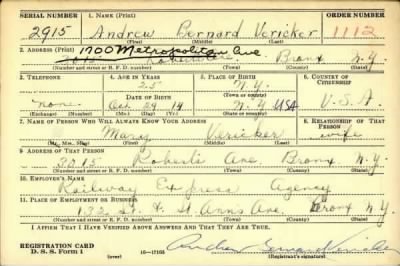 SERIAL NUMBER 1. NAME (Print) ORDER NUMBER
2915 Andrew Bernard Vericker 1112
(First) (Middle) (Last)
2. ADDRESS (Print) 1700 Metropolitan Ave
3015 Roberts Ave. Bronx N.Y.
(Number and street or R. F. D. number) (Town) (County) (State)
3. TELEPHONE 4. AGE IN YEARS 5. PLACE OF BIRTH 6. COUNTRY OF CITIZENSHIP
25 N.Y.
none DATE OF BIRTH (Town or county)
Oct 29 14 N.Y USA U.S.A.
(Exchange) (Number) (Mo.) (Day) (Yr.) (State or country)
7. NAME OF PERSON WHO WILL ALWAYS KNOW YOUR ADDRESS 8. RELATIONSHIP OF THAT PERSON
Mary Vericker wife
(Mr., Mrs., Miss) (First) (Middle) (Last)
9. ADDRESS OF THAT PERSON
3015 Roberts Ave Bronx N.Y.
(Number and street or R. F. D. number) (Town) (County) (State)
10. EMPLOYER'S NAME
Railway Express Agency
11. PLACE OF EMPLOYMENT OR BUSINESS
132 St & St Anns Ave Bronx N.Y.
(Number and street or R. F. D. number) (Town) (County) (State)
I AFFIRM THAT I HAVE VERIFIED ABOVE ANSWERS AND THAT THEY ARE TRUE.
REGISTRATION CARD
D. S. S. Form 1 16—17105 Andrew Bernard Vericker
(over)